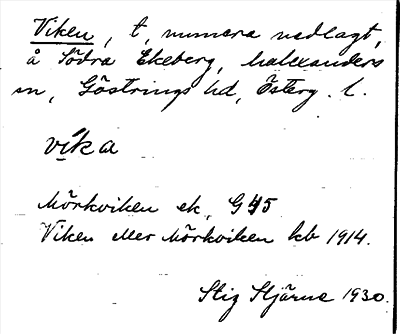 Viken, t, numera nedlagt,
å Södra Ekeberg, Malexanders
sn, Göstrings hd, Österg. l.
vika
Mörkviken ek, G 45
Viken eller Mörkviken kb 1914.
Stig Stjärne 1930.